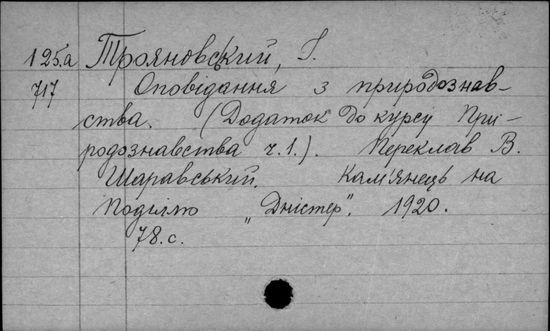 125.а Трояновський, І.
717 Оповідання з природознав-
ства. (Додаток до курсу При-
родознавства ч.1.). Переклав В.
Шаравський. Камʼянець на
Поділлю „Дністер". 1920.
78.с.